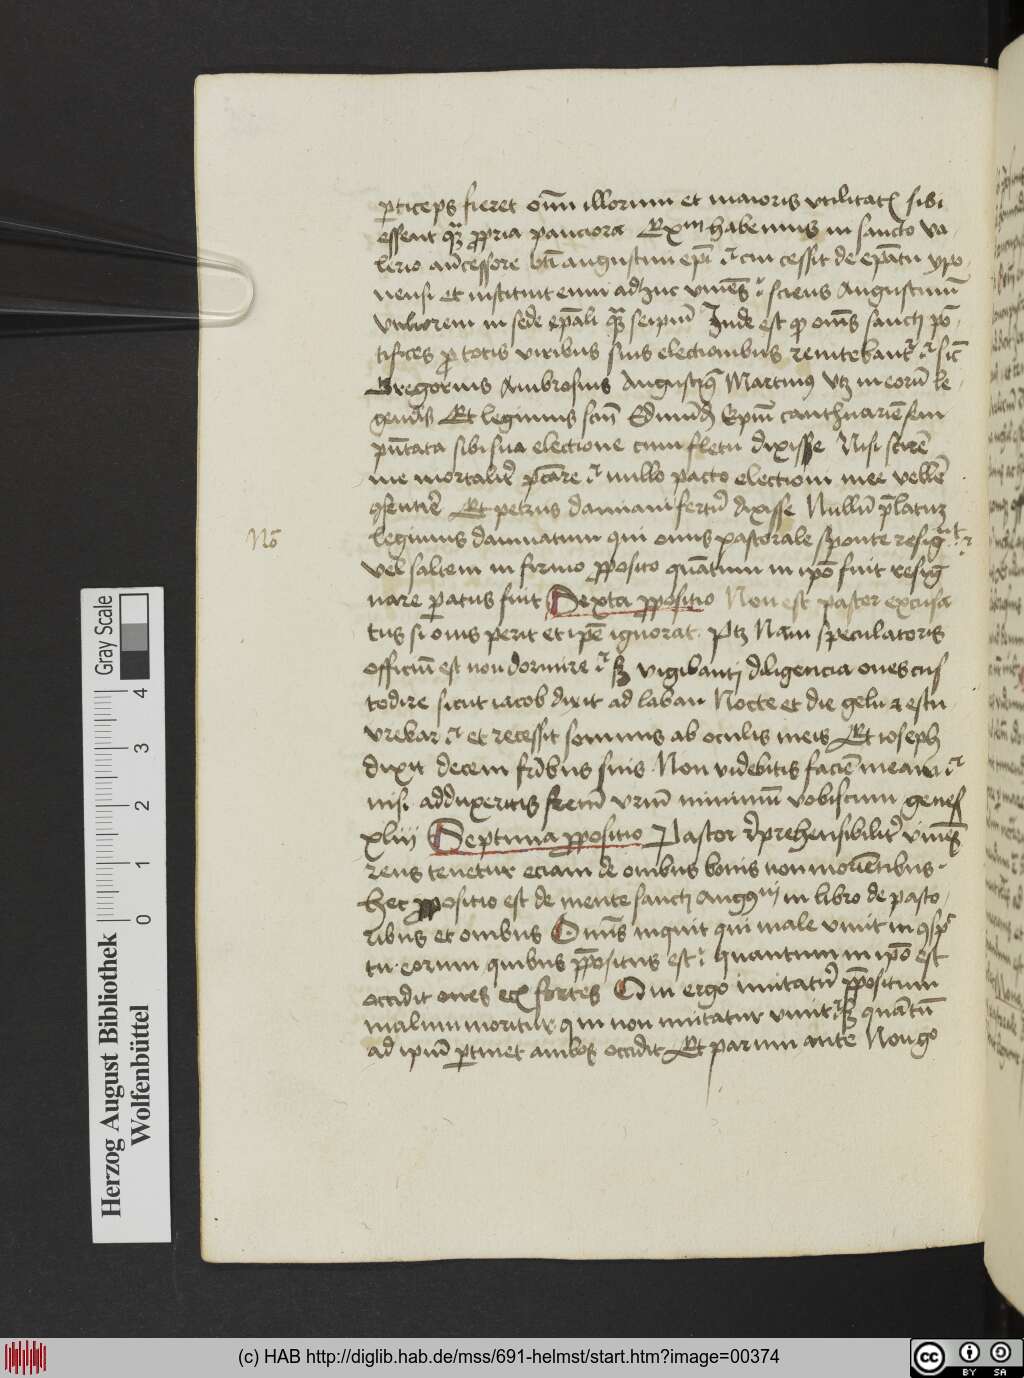 p̱ticeps fieret oı̄m illorum et maioris vtilitatꝭ sibi
essent qͣꝫ ꝓpria pauciora Exᵐ habemus in sancto va-
lerio ān̄cessore bt̄i augustini ep̄i ⁊ͨ cui cessit de ep̄atu ypo-
nensi et instituit eum adhuc viuēs ⁊ sciens Augustinū
vtiliorem in sede ep̄ali qͣꝫ seipm̄ Inde est ꝙ om̄s sancti pō-
tifices ꝓ totis viribus suis electionibus renitebantʳ ⁊ͨ sic̄
Gregorius Ambrosius Augustiꝰ Martinꝰ vtꝫ in eorū le-
gendis Et legimus scm̄ Edmūdū Ep̄m canthuariēsem
pn̄tata sibi sua electione cum fletu dixisse Nisi scirē
me mortalitʳ pc̄care ⁊ͨ nullo pacto electioni mee vellē
ꝯsentire Et petrus damiani fertʳ dixisse Nullū p̄latū
Nō
legimus damnatum qui onus pastorale sponte resigᵃᵗ ⁊ͨ
vel saltem in firmo ꝓposito quātum in ip̄o fuit resig
nare ꝑatus fuit Sexta ꝓpositio Non est pastor excusa
tus si ouis perit et ip̄e ignorat. ptꝫ Nam speculatoris
officiū est non dormire ⁊ͨ sꝫ vigilanti diligencia oues cus
todire sicut iacob dixit ad laban Nocte et die gelu ⁊ estu
vrebar ⁊ͨ et recessit somnus ab oculis meis Et ioseph
dixit decem fr̄ibus suis. Non videbitis faciē meam ⁊ͨ
nisi adduxeritis frem̄ vr̄m minimū vobiscum genes
xliii Septima ꝓpositio Pastor r̄prehensibilitʳ viuēs
reus tenetur eciam de ouibus bonis non moriētibus.
hec propositio est de mente sancti augꝰⁿⁱ in libro de pasto-
ribus et ouibus Om̄is inquit qui male viuit in ꝯspc̄
tu eorum quibus p̄positus est ⁊ quantum in ip̄o est
occidit oues ecꝭ fortes Qui ergo imitatʳ p̄positum
malum moritur qui non imitatur viuit ⁊ͨ sꝫ quātū
ad ipm̄ ꝑtinet ambos occidit Et parum ante Non go
Gray Scale
0 1 2 3 4
Herzog August Bibliothek
Wolfenbüttel
(c) HAB http://diglib.hab.de/mss/691-helmst/start.htm?image=00374
cc BY SA